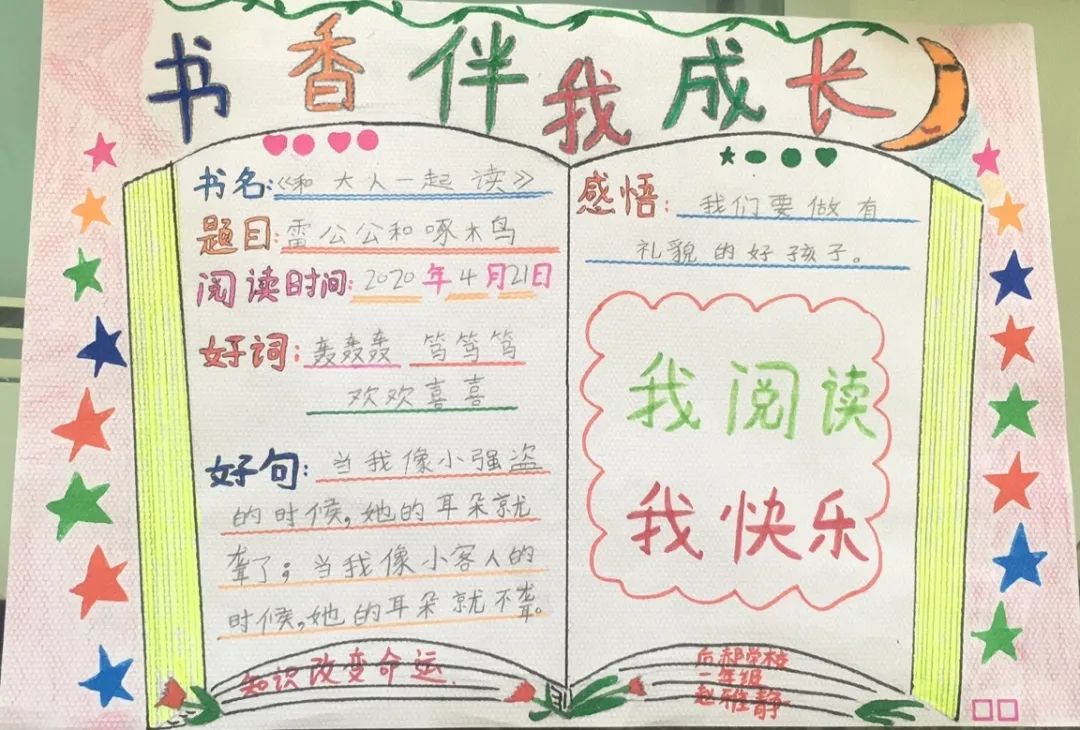 书香伴我成长
书名:《和大人一起读》
题目:雷公公和啄木鸟
阅读时间:2020年4月21日
好词:轰轰轰 笃笃笃
欢欢喜喜
好句:当我像小强盗
的时候,她的耳朵就
聋了;当我像小客人的
时候,她的耳朵就不聋。
知识改变命运.
感悟:我们要做有
礼貌的好孩子。
我阅读
我快乐
后郝学校
一年级
赵雅静